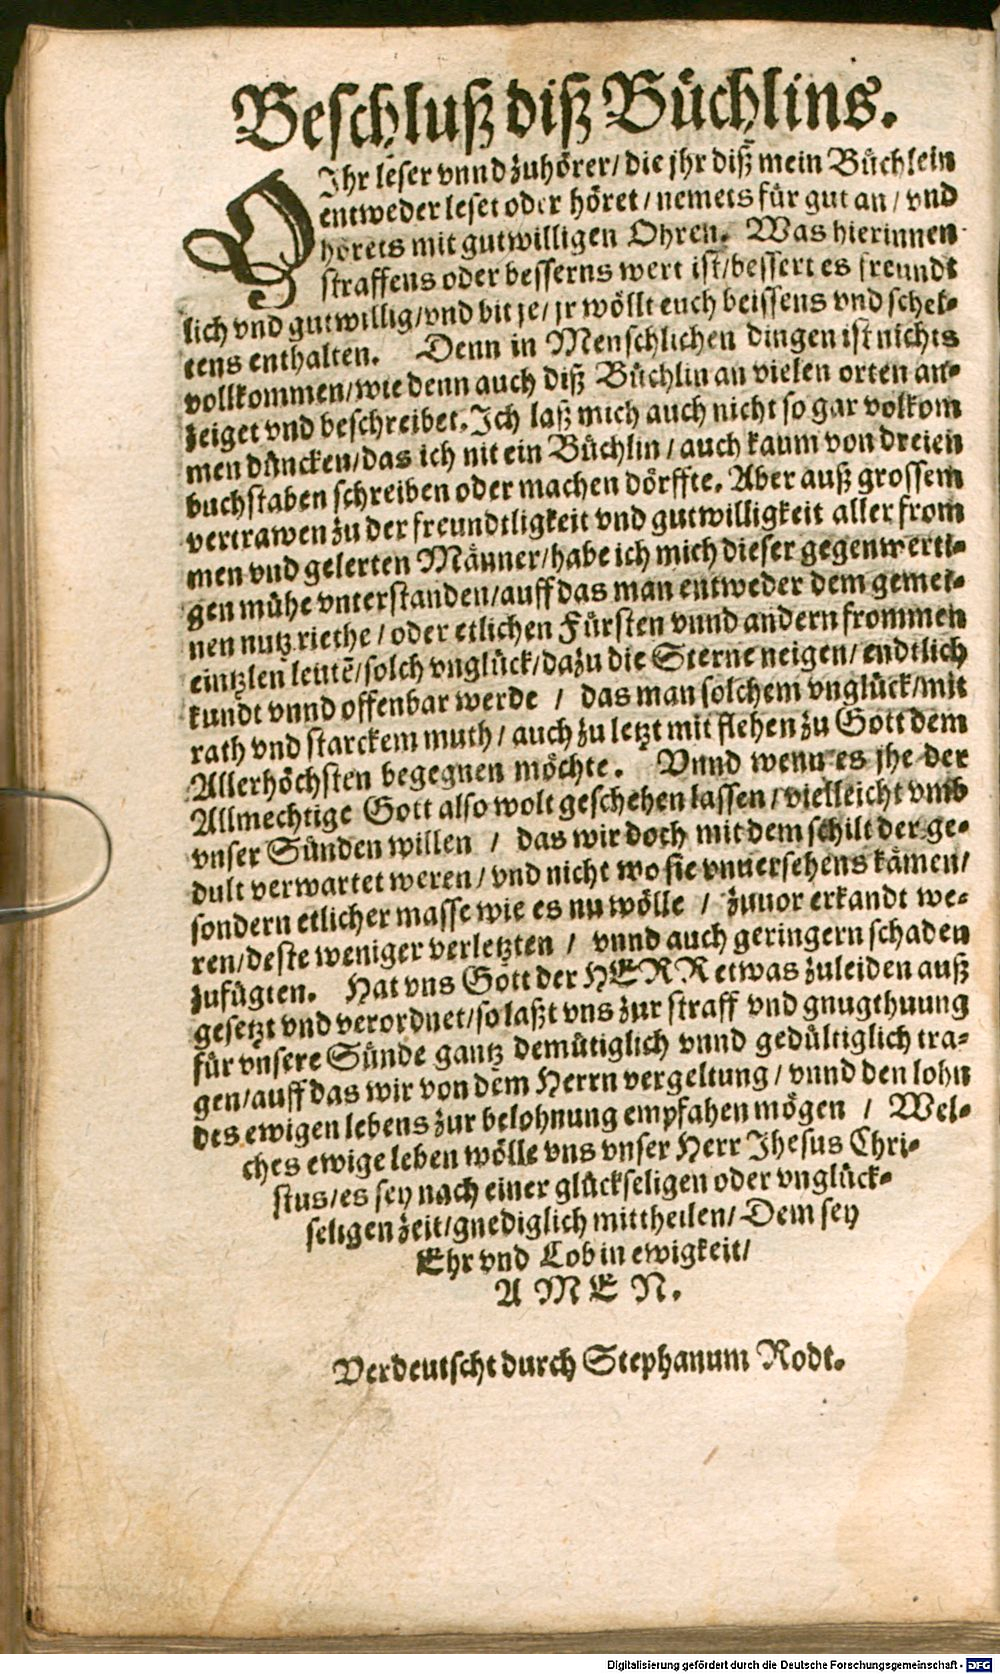 Beschluß diß Büchlins.
O Ihr leser vnnd zuhörer/ die jhr diß mein Büchlein
entweder leset oder höret/ nemets für gut an/ vnd
hörets mit gutwilligen Ohren. Was hierinnen
straffens oder besserns wert ist/bessert es freundt
lich vnd gutwillig/vnd bit je/ jr wöllt euch beissens vnd schel-
tens enthalten. Denn in Menschlichen dingen ist nichts
vollkommen/wie denn auch diß Büchlin an vielen orten an-
zeiget vnd beschreibet. Ich laß mich auch nicht so gar volkom
men düncken/das ich nit ein Büchlin/ auch kaum von dreien
buchstaben schreiben oder machen dörffte. Aber auß grossem
vertrawen zu der freundtligkeit vnd gutwilligkeit aller from
men vnd gelerten Männer/habe ich mich dieser gegenwerti-
gen mühe vnterstanden/auff das man entweder dem gemei-
nen nutz riethe/ oder etlichen Fürsten vnnd andern frommen
eintzlen leutē/solch vnglück/dazu die Sterne neigen/ endtlich
kundt vnnd offenbar werde / das man solchem vnglück/mit
rath vnd starckem muth/ auch zu letzt mit flehen zu Gott dem
Allerhöchsten begegnen möchte. Vnnd wenn es jhe der
Allmechtige Gott also wolt geschehen lassen/ vielleicht vmb
vnser Sünden willen / das wir doch mit dem schilt der ge-
dult verwartet weren/ vnd nicht wo sie vnuersehens kämen/
sondern etlicher masse wie es nu wölle / zuuor erkandt we-
ren/deste weniger verletzten / vnnd auch geringern schaden
zufügten. Hat vns Gott der HERR etwas zuleiden auß
gesetzt vnd verordnet/so laßt vns zur straff vnd gnugthuung
für vnsere Sünde gantz demütiglich vnnd gedültiglich tra-
gen/auff das wir von dem Herrn vergeltung/ vnnd den lohn
des ewigen lebens zur belohnung empfahen mögen / Wel-
ches ewige leben wölle vns vnser Herr Jhesus Chri-
stus/es sey nach einer glückseligen oder vnglück-
seligen zeit/gnediglich mittheilen/ Dem sey
Ehr vnd Lob in ewigkeit/
A M E N.
Verdeutscht durch Stephanum Rodt.
Digitalisierung gefördert durch die Deutsche Forschungsgemeinschaft - DFG